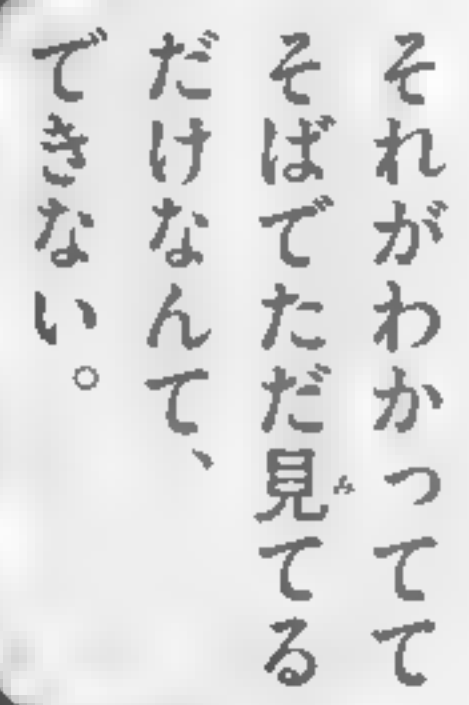 それがわかってて
そばでただ見てる
だけなんて、
できない。